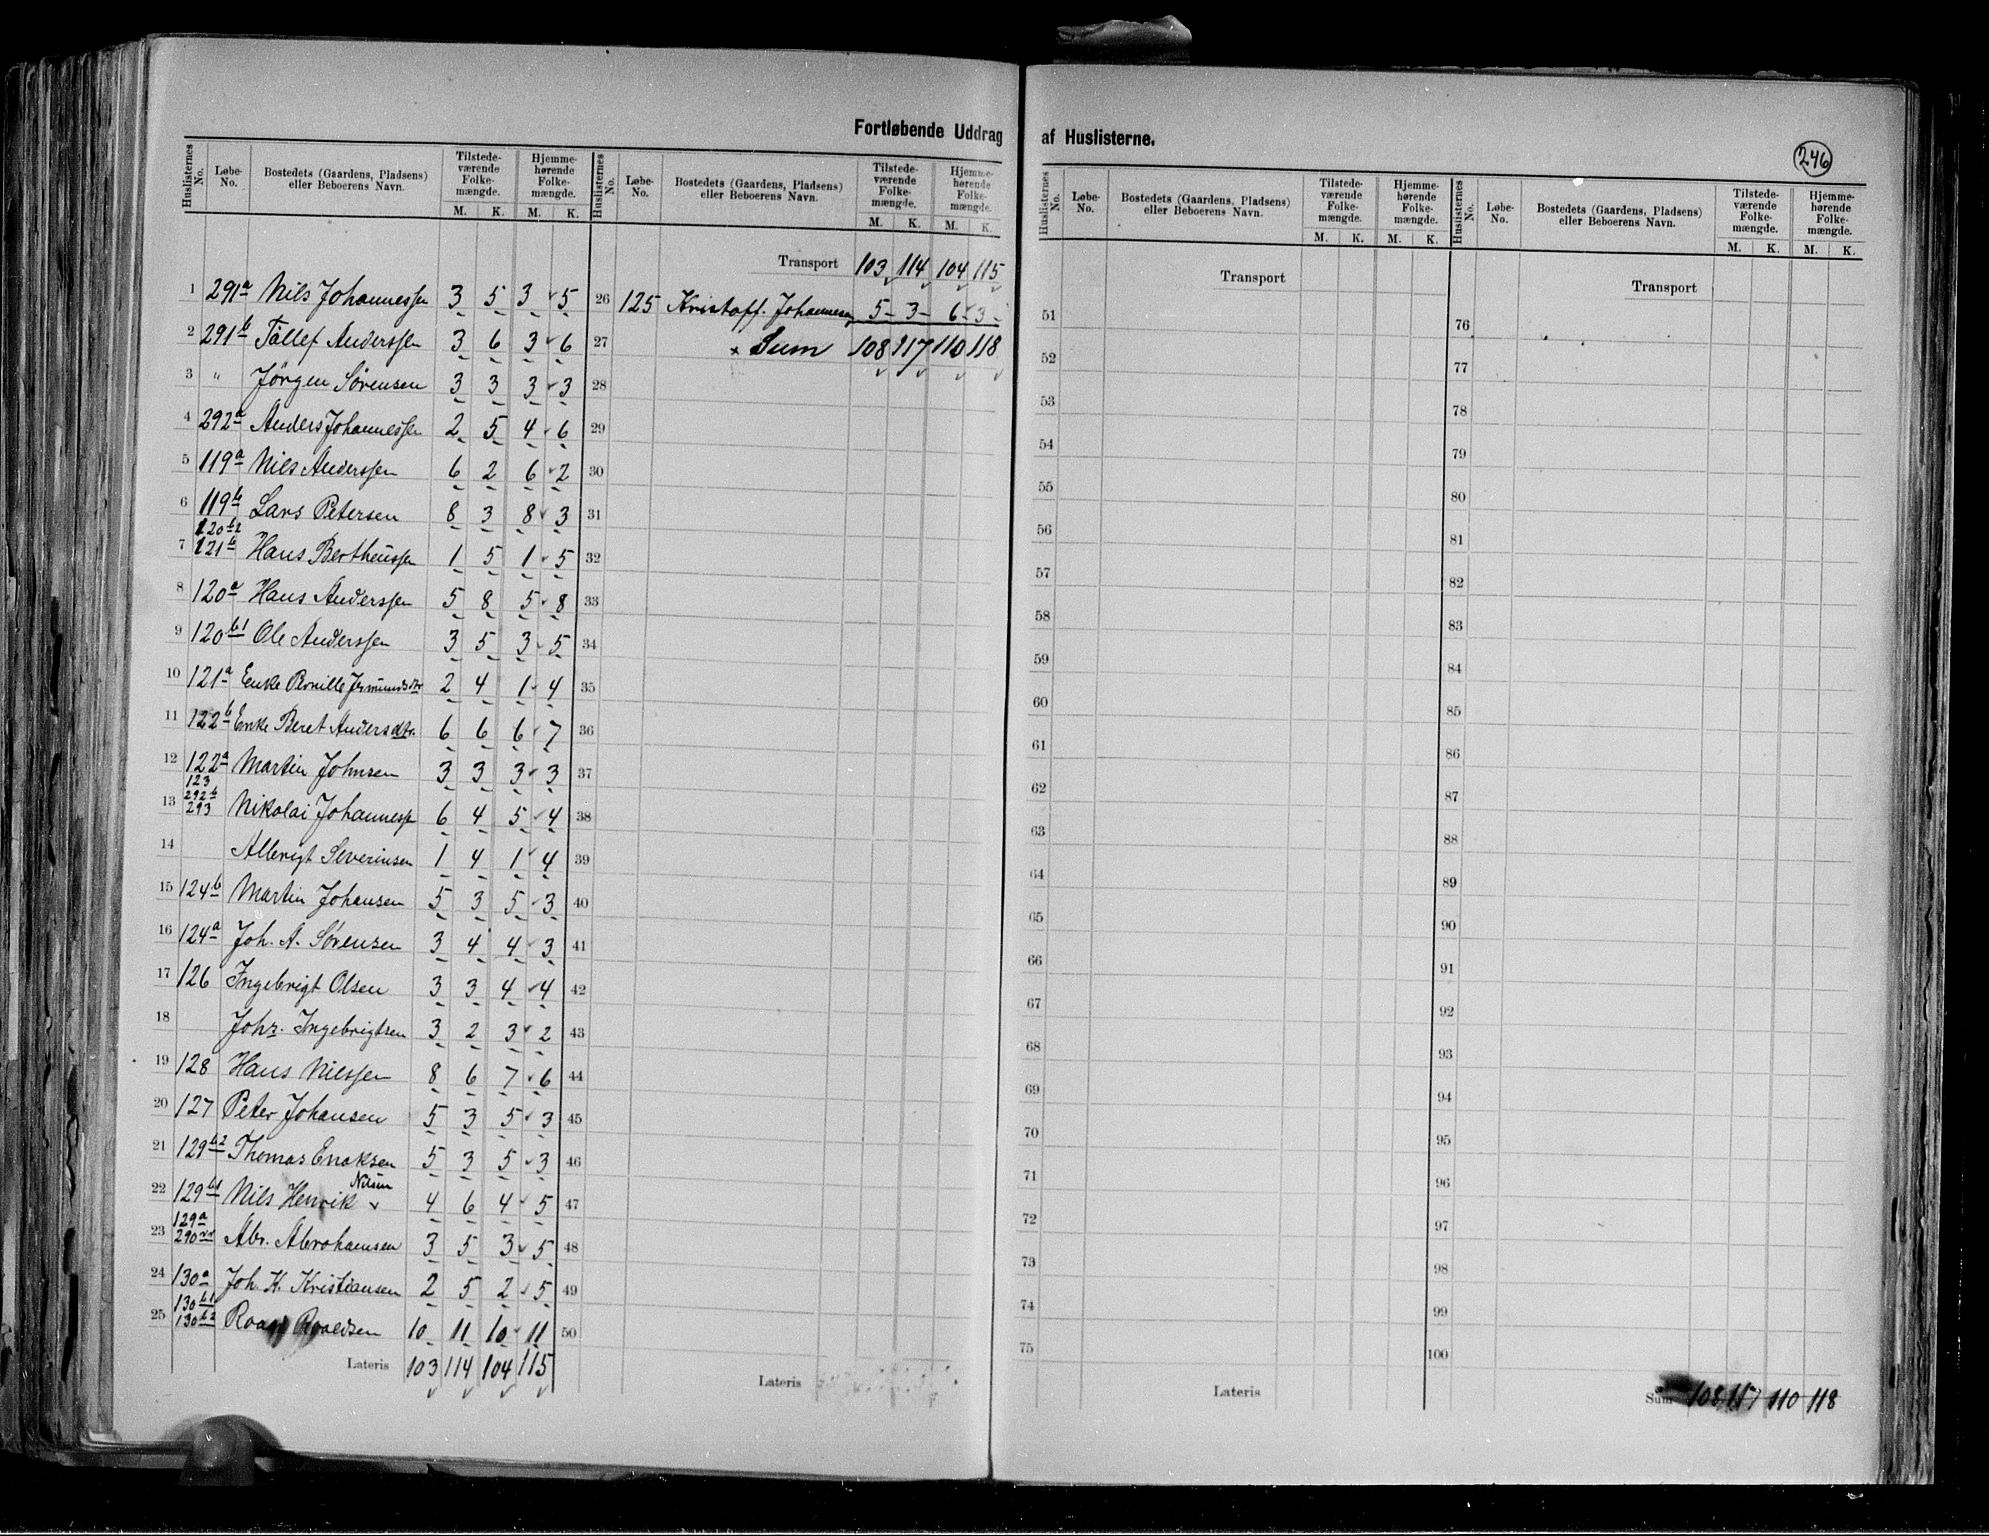 Fortløbende Uddrag af Huslisterne.
246
Huslisternes No. Løbe-No. Bostedets (Gaardens, Pladsens) eller Beboerens Navn. Tilstede-værende Folke-mængde. M. K. Hjemme-hørende Folke-mængde. M. K.
1 291a Nils Johannessen 3 5 3 5
2 291b Tollef Anderssen 3 6 3 6
3 " Jörgen Sørensen 3 3 3 3
4 292a Anders Johannessen 2 5 4 6
5 119a Nils Anderssen 6 2 6 2
6 119b Lars Petersen 8 3 8 3
120b2
7 121b Hans Bertheussen 1 5 1 5
8 120a Hans Anderssen 5 8 5 8
9 120b1 Ole Anderssen 3 5 3 5
10 121a Enke Pernille Jermundsdtr 2 4 1 4
11 122b Enke Beret Andersdtr. 6 6 6 7
12 122a Martin Johnsen 3 3 3 3
123
292b
13 293 Nikolai Johanness 6 4 5 4
14 Albrigt Severinsen 1 4 1 4
15 124b Martin Johansen 5 3 5 3
16 124a Joh. A. Sørensen 3 4 4 3
17 126 Ingebrigt Olsen 3 3 4 4
18 Johs. Ingebrigtsen 3 2 3 2
19 128 Hans Nilssen 8 6 7 6
20 127 Peter Johansen 5 3 5 3
21 129b2 Thomas Enoksen 5 3 5 3
Nilsen
22 129b1 Nils Henrik 4 6 4 5
129a
23 290 Abr. Abrahamsen 3 5 3 5
24 130a Joh. K. Kristiansen 2 5 2 5
130b1
25 130b2 Roald Roaldsen 10 11 10 11
Lateris 103 114 104 115
Huslisternes No. Løbe-No. Bostedets (Gaardens, Pladsens) eller Beboerens Navn. Tilstede-værende Folke-mængde. M. K. Hjemme-hørende Folke-mængde. M. K.
Transport 103 114 104 115
26 125 Kristoff. Johannesen 5 3 6 3
27 Sum 108 117 110 118
28
29
30
31
32
33
34
35
36
37
38
39
40
41
42
43
44
45
46
47
48
49
50
Lateris
Huslisternes No. Løbe-No. Bostedets (Gaardens, Pladsens) eller Beboerens Navn. Tilstede-værende Folke-mængde. M. K. Hjemme-hørende Folke-mængde. M. K.
Transport
51
52
53
54
55
56
57
58
59
60
61
62
63
64
65
66
67
68
69
70
71
72
73
74
75
Lateris
Huslisternes No. Løbe-No. Bostedets (Gaardens, Pladsens) eller Beboerens Navn. Tilstede-værende Folke-mængde. M. K. Hjemme-hørende Folke-mængde. M. K.
Transport
76
77
78
79
80
81
82
83
84
85
86
87
88
89
90
91
92
93
94
95
96
97
98
99
100
Sum 108 117 110 118